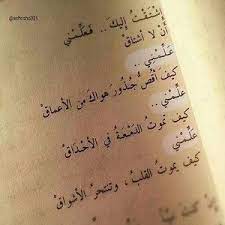 @ashosho321
اشْتَقْتُ إليكَ .. فَعَلِّمْني
أنْ لا أشتاقْ
عَلِّمْني ..
كيفَ أقُصُّ جُذُورَ هواكَ مِنَ الأعماقْ
عَلِّمْني ..
كيفَ تموتُ الدَمْعَةُ في الأحْدَاقْ
عَلِّمْني
كيفَ يموتُ القلبُ ، وتنتحرُ الأشواقْ